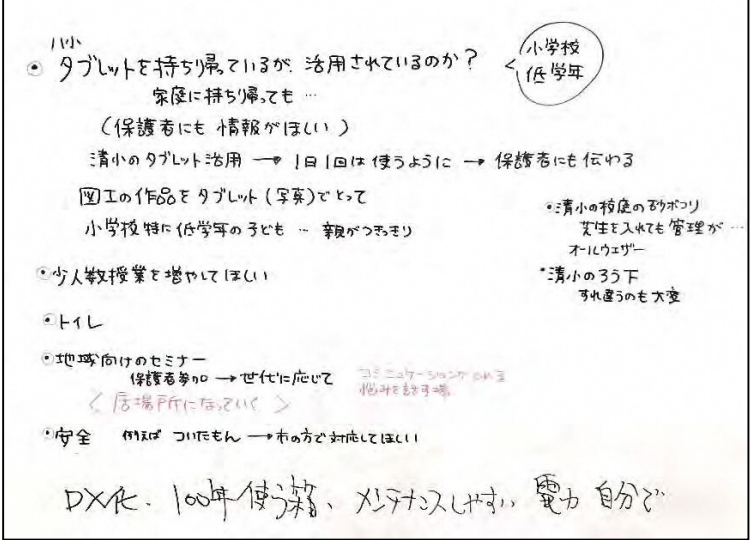 八小
・タブレットを持ち帰っているが、活用されているのか？
小学校
低学年
家庭に持ち帰っても…
（保護者にも情報がほしい）
清小のタブレット活用→1日1回は使うように→保護者にも伝わる
図工の作品をタブレット(写真)でとって
小学校特に低学年の子ども…親がつきっきり
・清小の校庭の砂ボコリ
芝生を入れても管理が…
オールウェザー
・清小のろう下
すれ違うのも大変
・少人数授業を増やしてほしい
・トイレ
・地域向けのセミナー
保護者参加→世代に応じて
コミニュケーションがとれる
悩みを話す場
＜居場所になっていく＞
・安全 例えば ついたもん→市の方で対応してほしい
DX化、100年使う箱、メンテナンスしやすい 電力 自分で